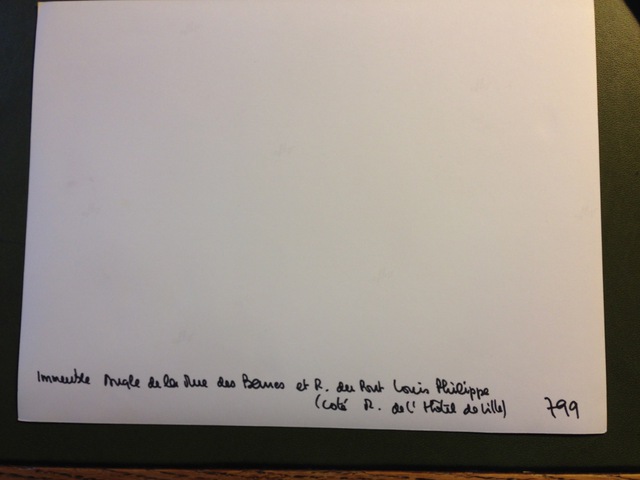 Immeuble Angle de la Rue des Barres et R. du Pont Louis Philippe
(coté R. de l'Hôtel de Ville) 799